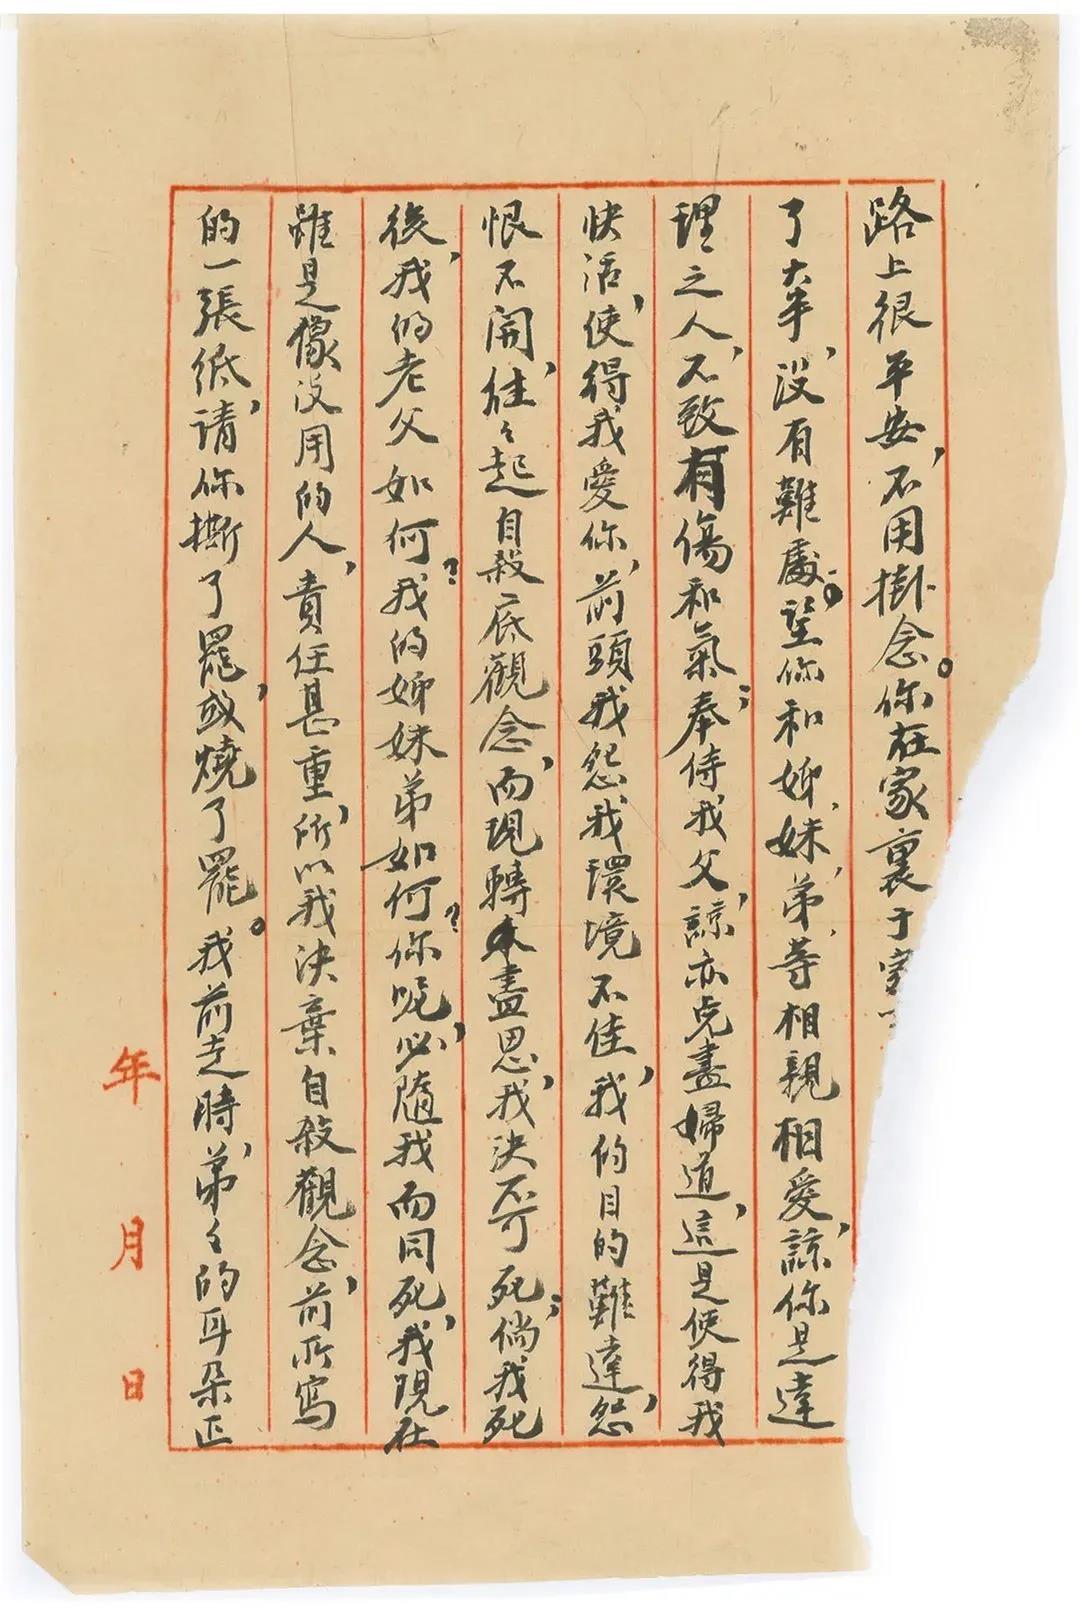 路上很平安，不用掛念。你在家裏于家
了大半，沒有難處。望你和姊，妹，弟，等相親相愛，諒你是達
理之人，不致有傷和氣；奉侍我父，諒亦克盡婦道，這是使得我
快活，使得我愛你，前頭我怨我環境不佳，我的目的難達，怨
恨不開，往々起自殺底觀念，而現轉盡思，我決不可死；倘我死
後，我的老父如何？我的姊妹弟如何？你呢，必隨我而同死，我現在
雖是像沒用的人，責任甚重，所以我決棄自殺觀念，前所寫
的一張紙，請你撕了罷，或燒了罷。我前走時，弟々的耳朵正
年 月 日